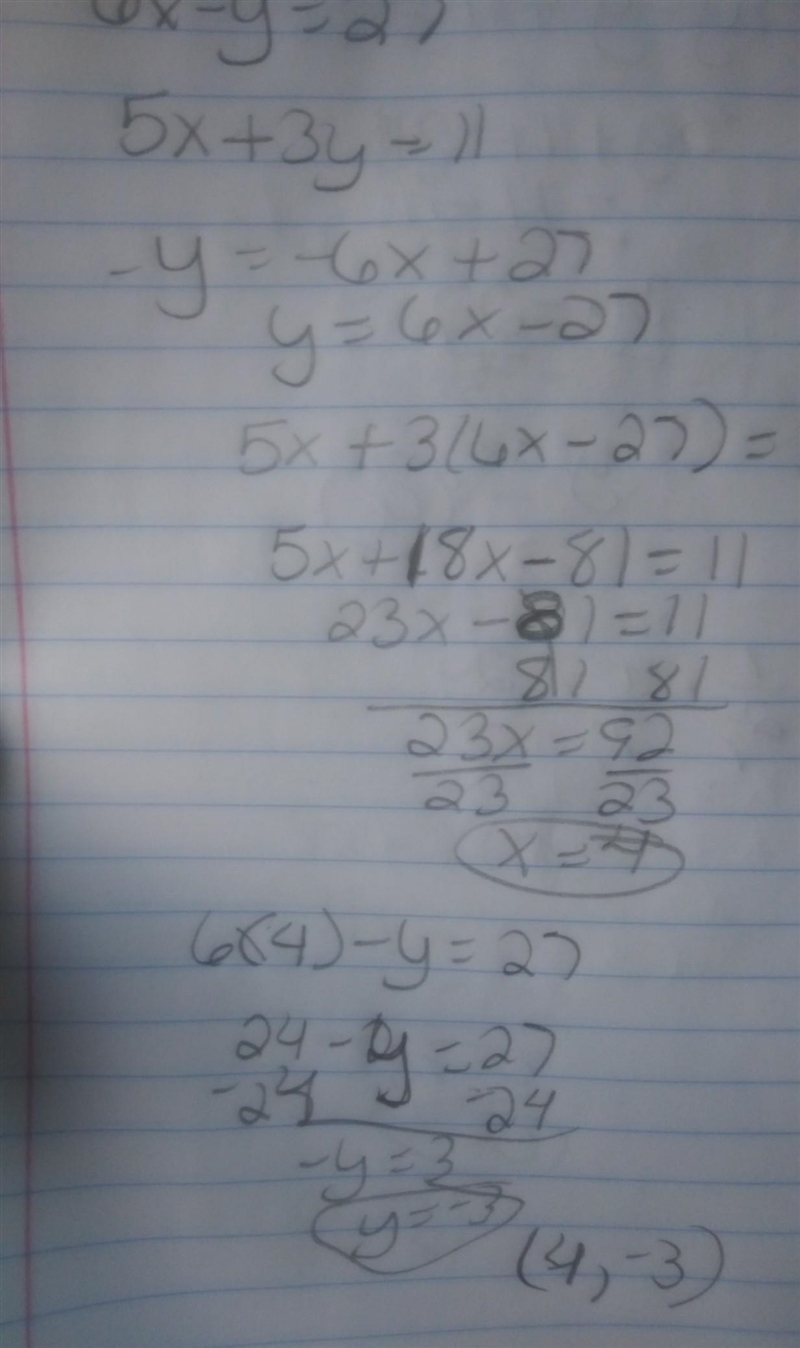 6x-y=27
5x+3y=11
-y=-6x+27
y=6x-27
5x+3(6x-27)=
5x+18x-81=11
23x-81=11
81 81
23x=92
23 23
x=4
6(4)-y=27
24-y=27
-24 -24
-y=3
y=-3
(4,-3)